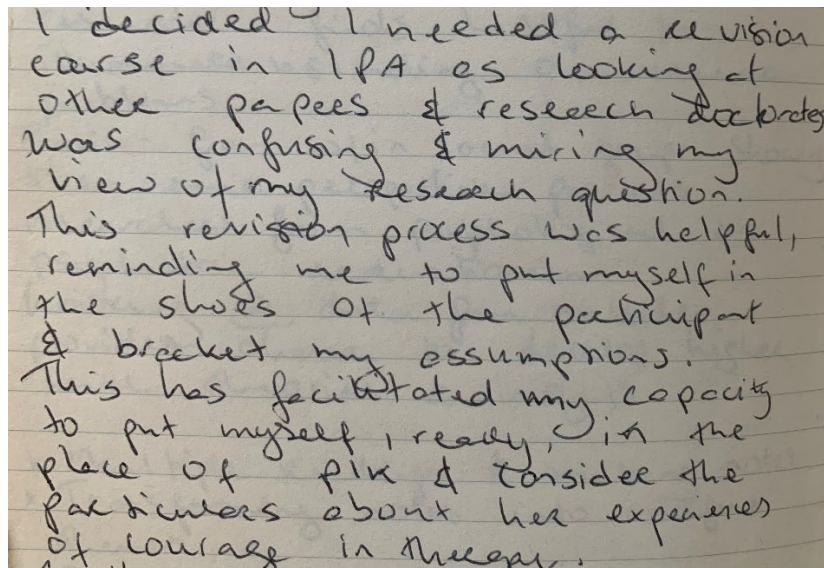 I decided I needed a revision
course in IPA as looking at
other papers & research doctorates
was confusing & miring my
view of my research question.
This revision process was helpful,
reminding me to put myself in
the shoes of the participant
& bracket my assumptions.
This has facilitated my capacity
to put myself, ready, in the
place of & consider the
particulars about her experiences
of courage in